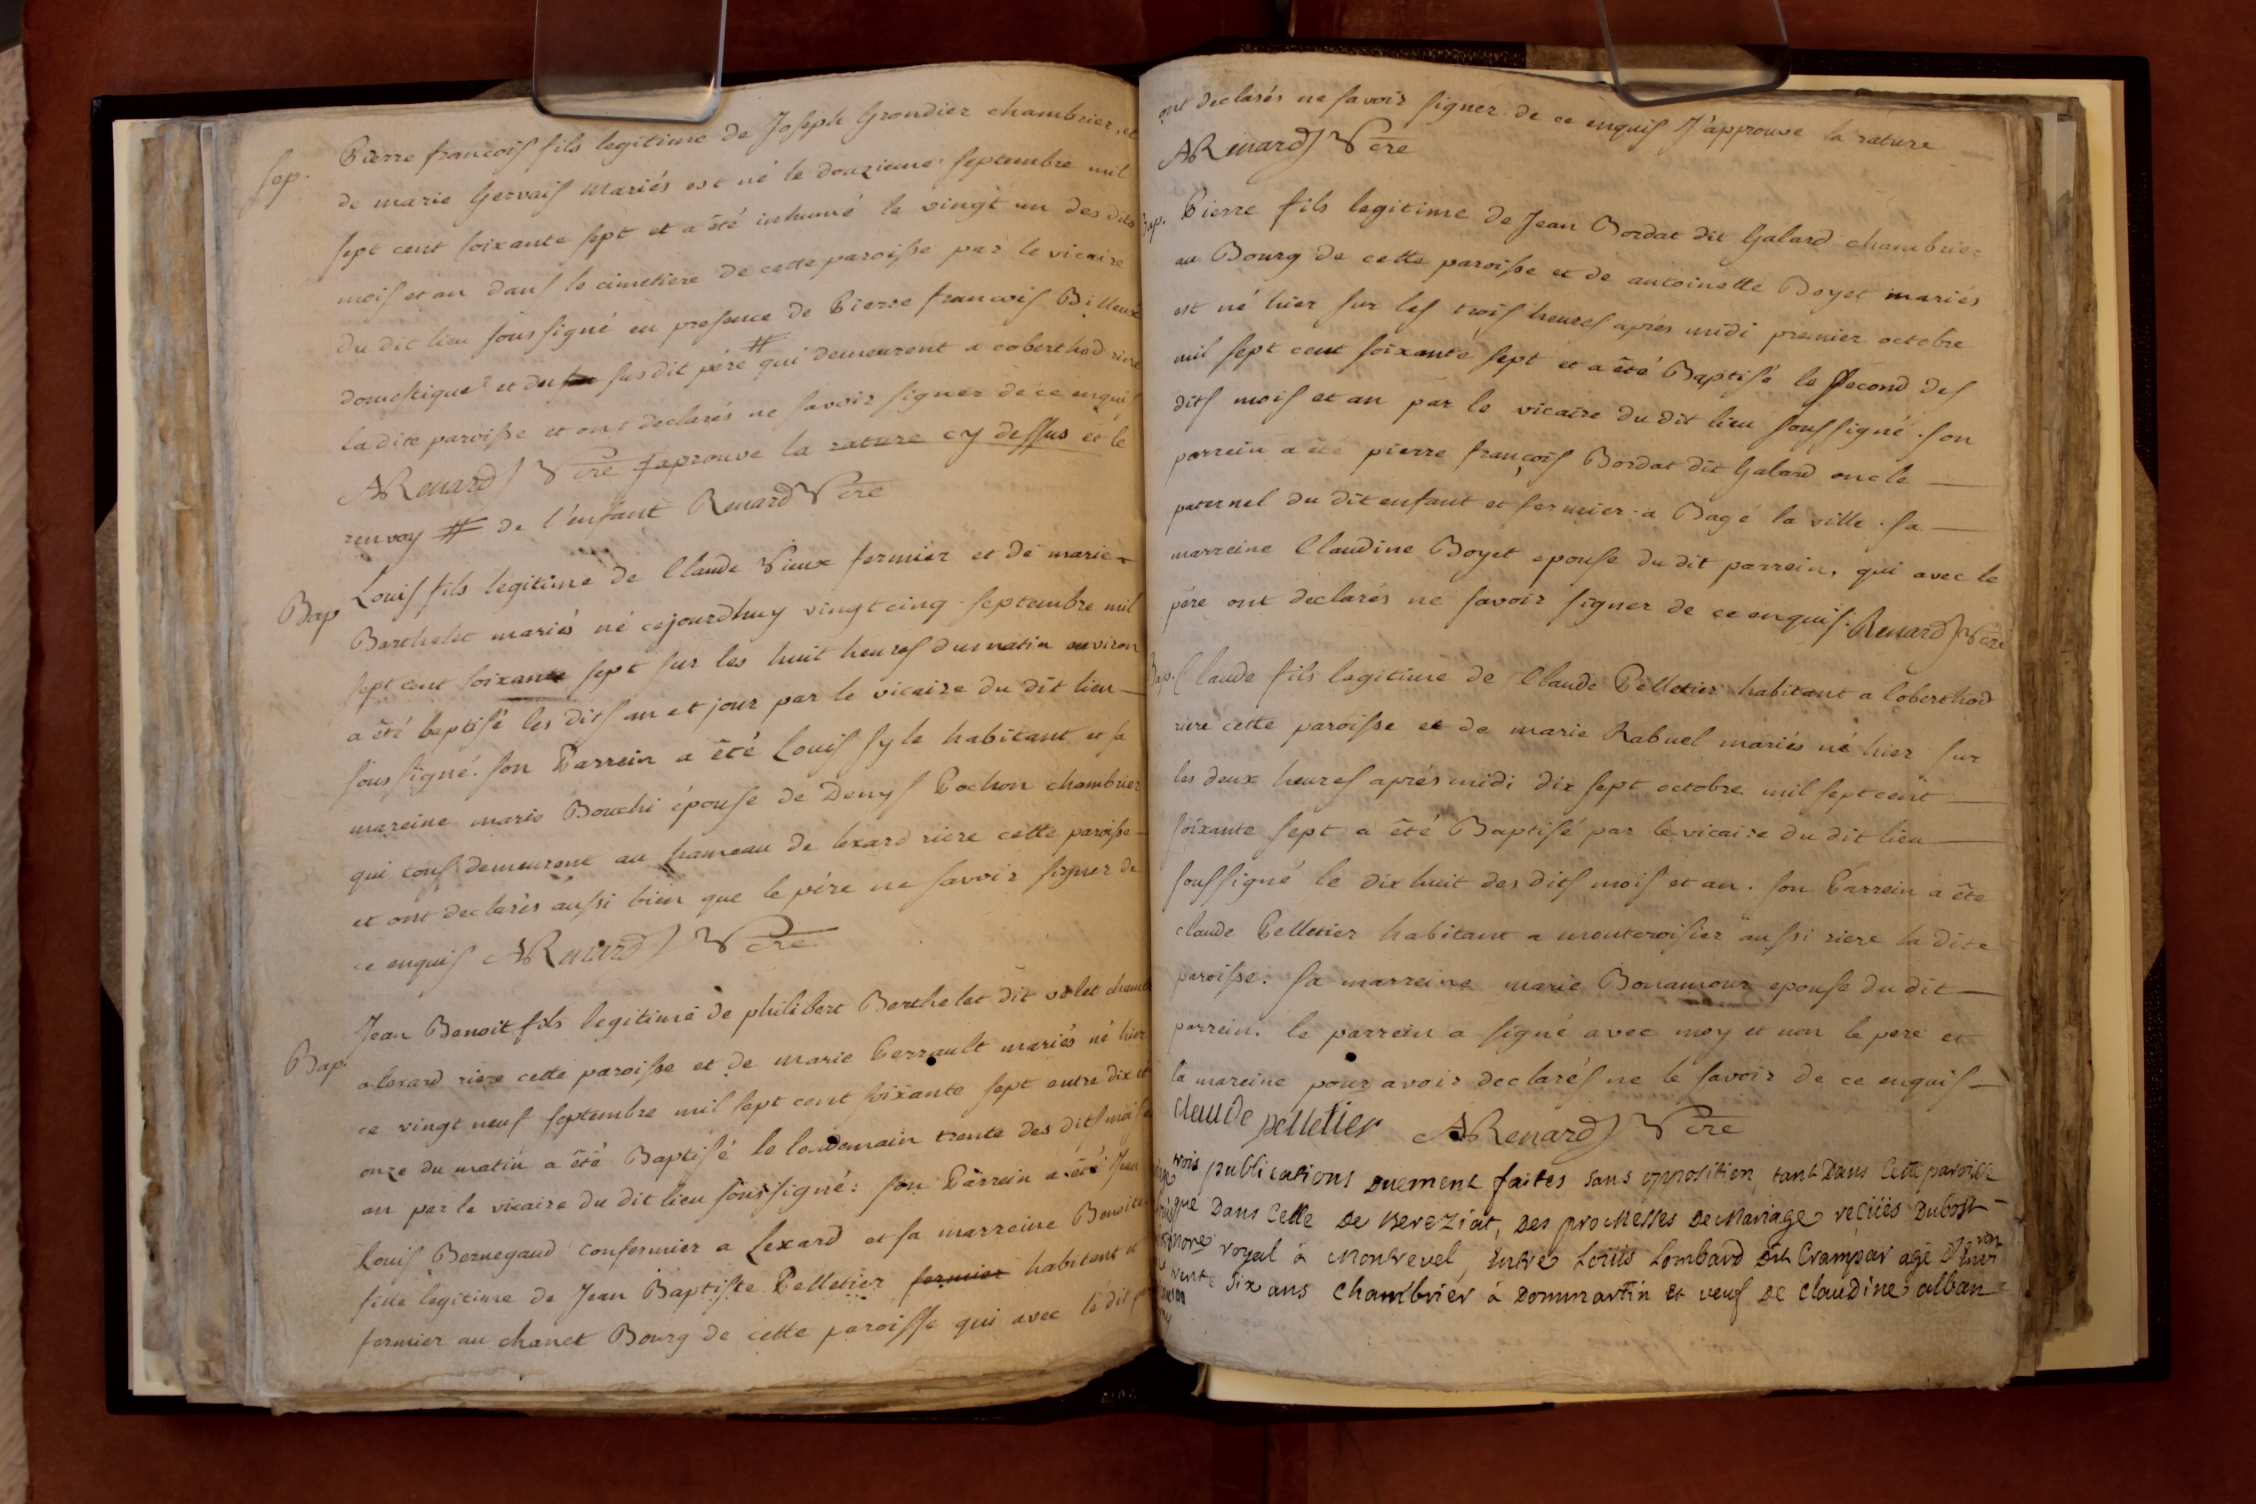 Sep.
Pierre francois fils legitime de Joseph Grondier chambrier, et
de marie Gervais mariés est né le douzieme septembre mil
sept cent soixante sept et a été inhumé le vingt un des dits
mois et an dans le cimetiere de cette paroisse par le vicaire
du dit lieu soussigné en presence de Pierre francois Billeux
domestique et du susdit pére # qui demeurent a coberthod riere
la dite paroisse et ont declarés ne savoir signer de ce enquis
ARenard Vcre J'aprouve la rature cy dessus et le
renvoy # de l'enfant Renard Vcre
Bap
Louis fils legitime de Claude Vieux fermier et de marie
Barthelet mariés né cejourdhuy vingt cinq septembre mil
sept cent soixante sept sur les huit heures du matin environ
a été baptisé les dits an et jour par le vicaire du dit lieu
soussigné. son Parrein a été Louis syle habitant et sa
mareine marie Bouchi épouse de Denys Pochon chambrier
qui tous demeurent au hameau de lexard riere cette paroisse
et ont declarés aussi bien que le pére ne savoir signer de
ce enquis ARenard Vcre
Bap.
Jean Benoit fils legitime de philibert Berthelet dit valet chamb
a lexard riere cette paroisse et de marie Perrault mariés né hier
ce vingt neuf septembre mil sept cent soixante sept entre dix et
onze du matin a été Baptisé le lendemain trente des dits mois
an par le vicaire du dit lieu soussigné: son Parrein a été Jean
Louis Bernegaud confermier a Lexard et sa marreine Benoite
fille legitime de Jean Baptiste Pelletier fermier habitant et
fermier au chanet Bourg de cette paroisse qui avec le dit
ont declarés ne savoir signer de ce enquis J'approuve la rature
ARenard Vcre
Bap.
Pierre fils legitime de Jean Bordat dit Galard chambrier
au Bourg de cette paroisse et de antoinette Boyet mariés
est né hier sur les trois heures aprés midi premier octobre
mil sept cent soixante sept et a été Baptisé le second des
dits mois et an par le vicaire du dit lieu soussigné. son
parrein a été pierre françois Bordat dit Galard oncle
paternel du dit enfant et fermier a Bagé la ville. sa
marreine Claudine Boyet epouse du dit parrein, qui avec le
pére ont déclarés ne savoir signer de ce enquis. Renard Vcre
Bap.
Claude fils legitime de Claude Pelletier habitant a Coberthod
riere cette paroisse et de marie Rabuel mariés né hier sur
les deux heures aprés midi dix sept octobre mil sept cent
soixante sept a été Baptisé par le vicaire du dit lieu
soussigné le dix huit des dits mois et an. son Parrein a été
claude Pelletier habitant a montcroisier aussi riere la dite
paroisse. sa marreine marie Bonamour epouse du dit
parrein. le parrein a signé avec moy et non le pere et
la mareine pour avoir declarés ne le savoir de ce enquis
claude pelletier ARenard Vcre
trois publications duement faites sans opposition, tant dans Cette paroisse
que dans Celle de Bereziat, des promesses de Mariage recües Dubost
royal à Montrevel, entre Louis Lombard dit Crampar agé d'environ
trente Six ans Chambrier à Dommartin et veuf de Claudine alban